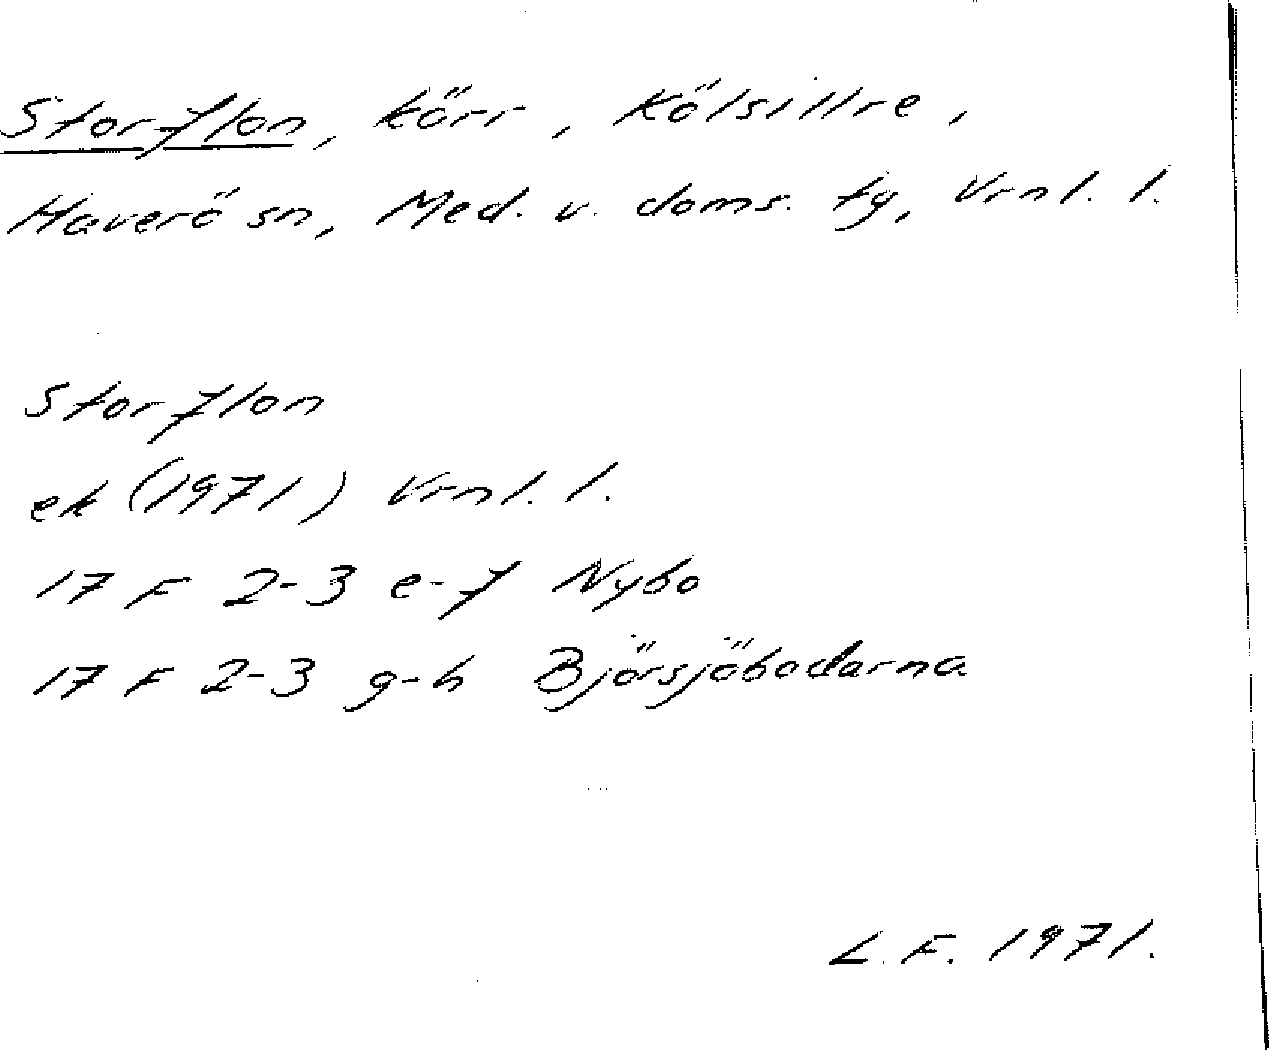 Storflon, kärr, Kölsillre,
Haverö sn, Med. v. doms. tg, Vrnl. l.
Storflon
ek (1971) Vrnl. l.
17 F 2-3 e-f Nybo
17 F 2-3 g-h Björsjöbodarna
L. F. 1971.